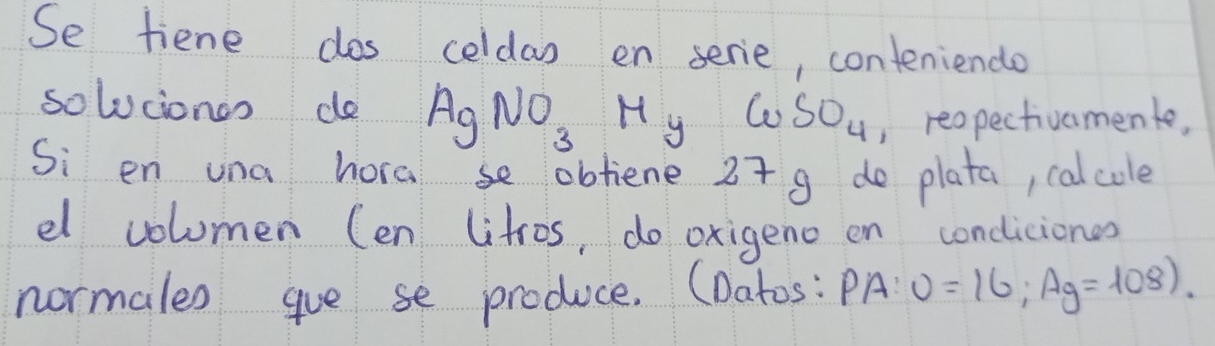 Se tiene dos celdas en serie, conteniendo
soluciones de AgNO₃ M y CuSO₄, respectivamente.
Si en una hora se obtiene 27 g de plata, calcule
el volumen (en litros, do oxigeno en condiciones
normales que se produce. (Datos: PA: O = 16; Ag = 108).